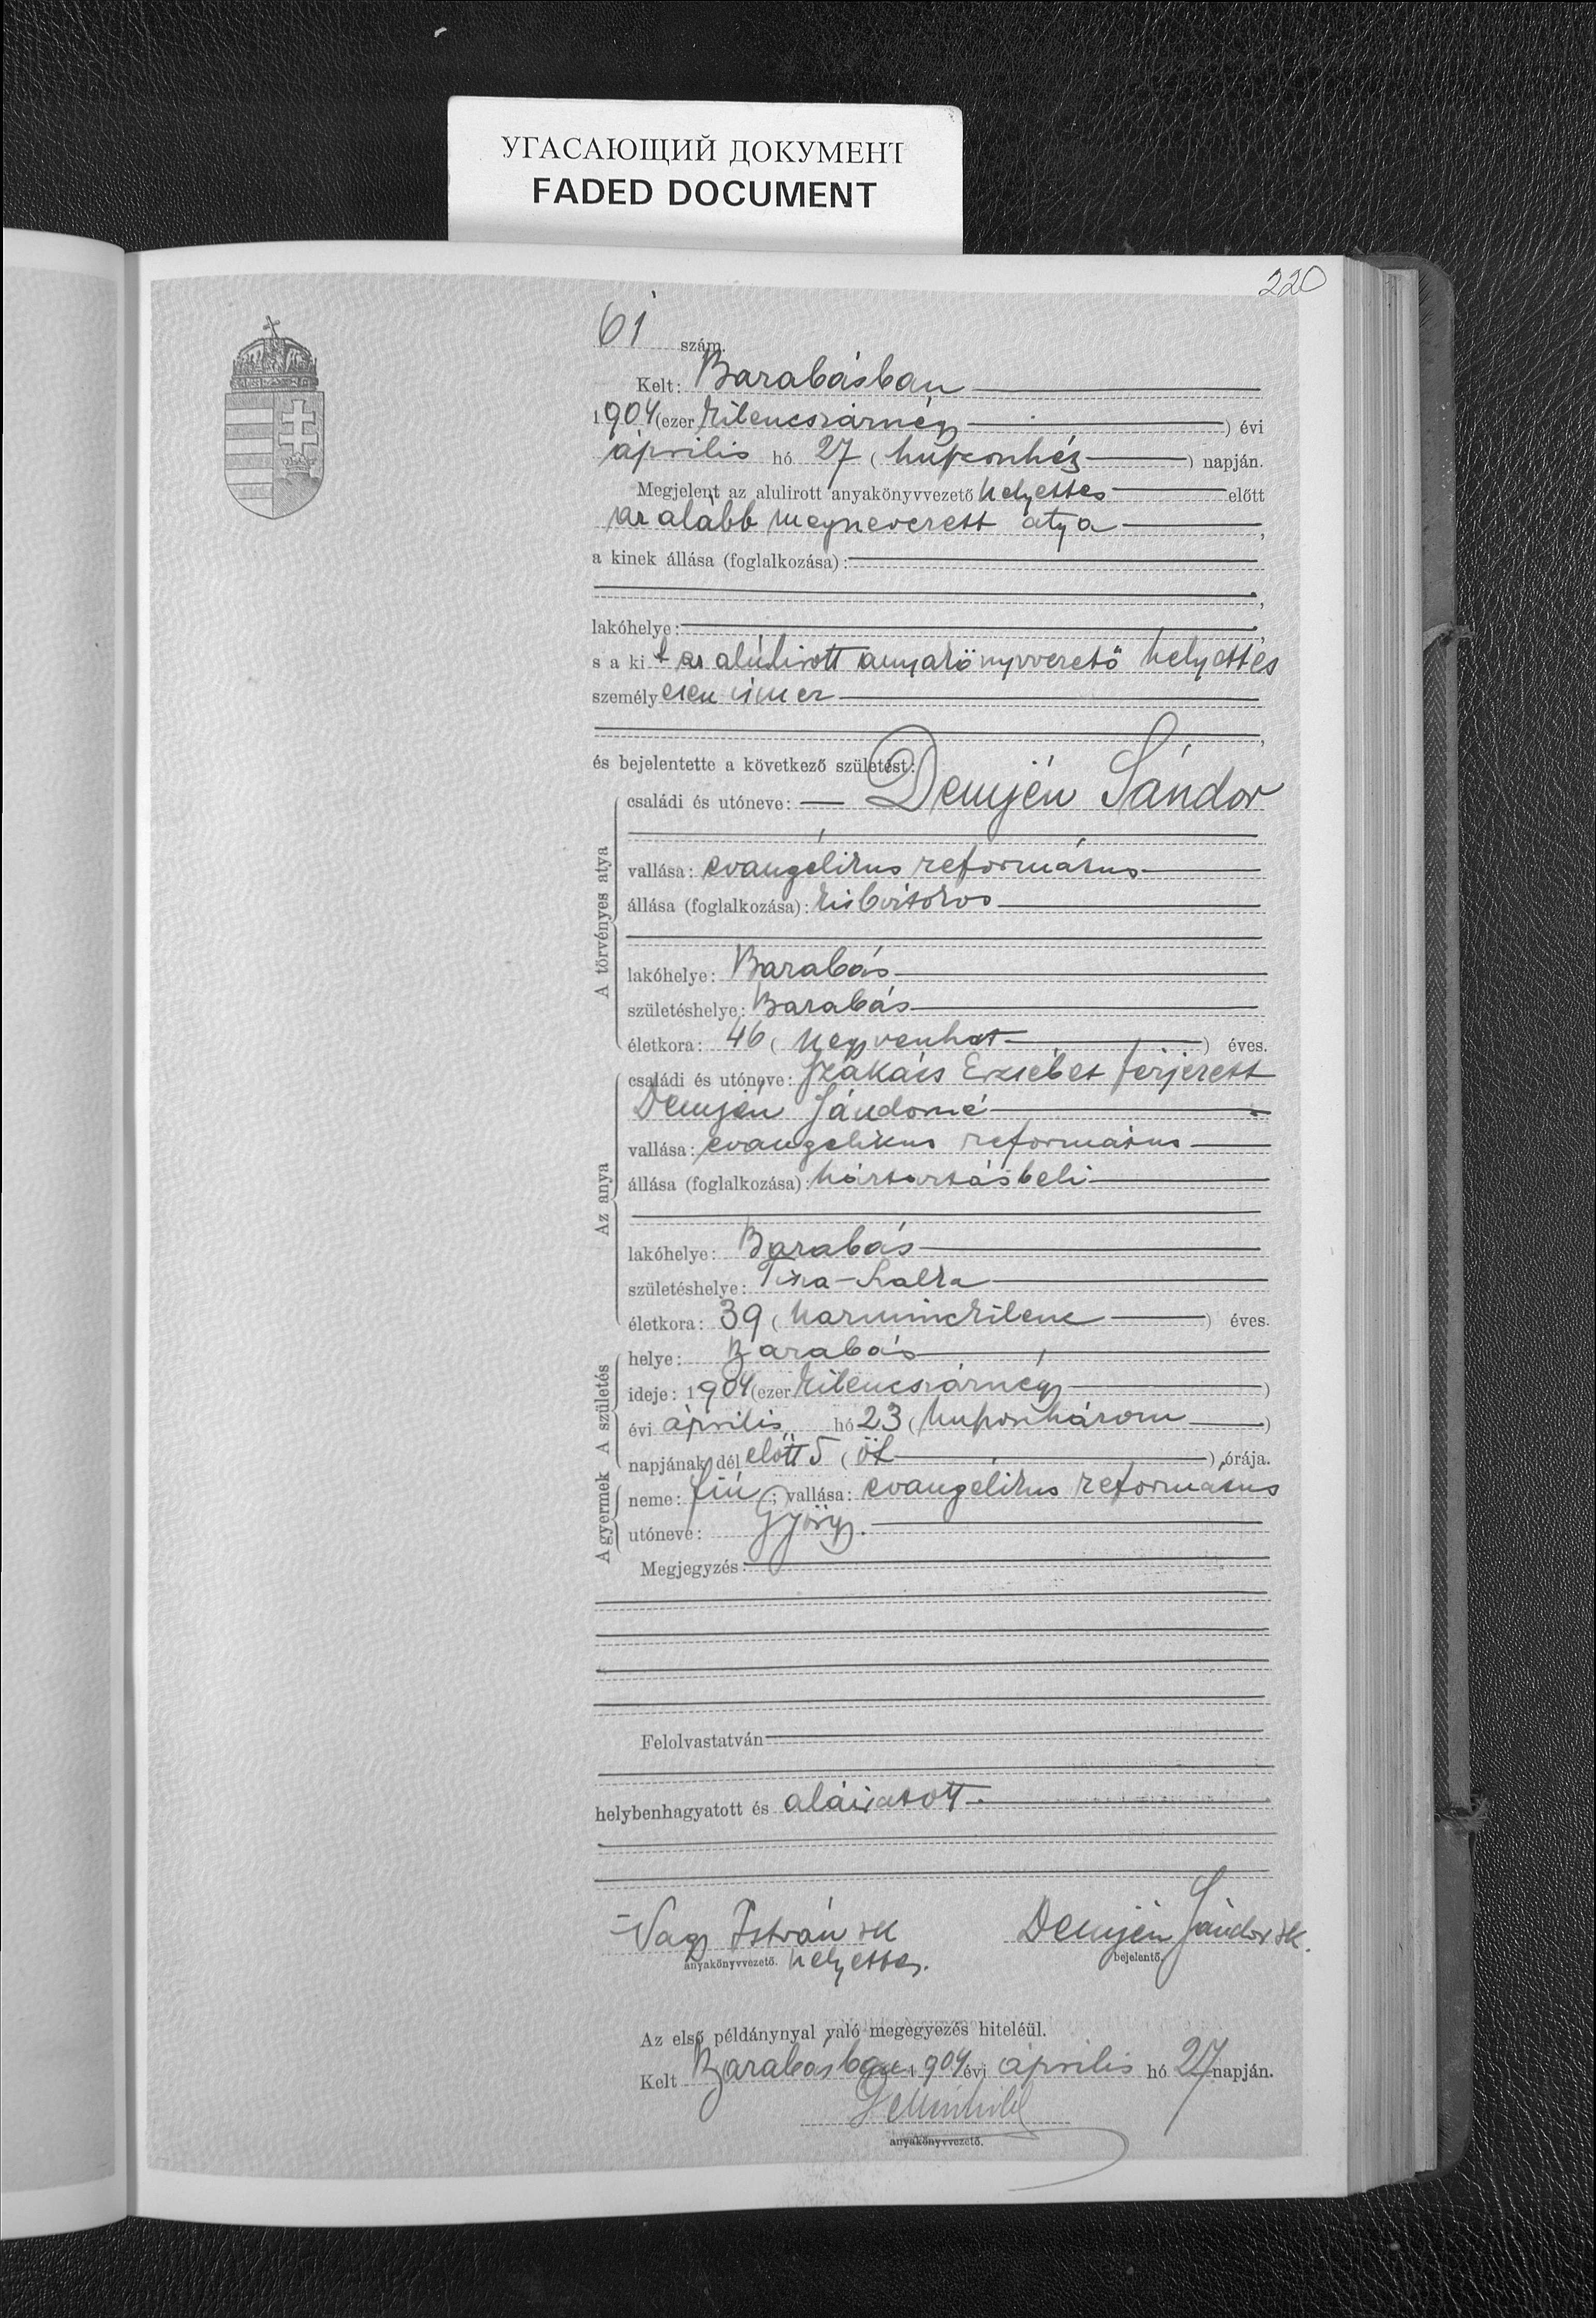 УГАСАЮЩИЙ ДОКУМЕНТ
FADED DOCUMENT
220
61 szám.
Kelt: Barabásban
1904 (ezer kilencszáznégy) évi
április hó 27 (huszonhét) napján.
Megjelent az alulirott anyakönyvvezető helyettes előtt
az alább megnevezett atya,
a kinek állása (foglalkozása):
lakóhelye:
s a kit az alúlirott anyakönyvvezető helyettes
személyesen ismer
és bejelentette a következő születést:
A törvényes atya
családi és utóneve: Demjén Sándor
vallása: evangélikus református
állása (foglalkozása): kisbirtokos
lakóhelye: Barabás
születéshelye: Barabás
életkora: 46 (negyvenhat) éves.
Az anya
családi és utóneve: Szakács Erzsébet férjezett
Demjén Sándorné
vallása: evangelikus református
állása (foglalkozása): háztartásbeli
lakóhelye: Barabás
születéshelye: Tisza-Szalka
életkora: 39 (harminckilenc) éves.
A születés
helye: Barabás
ideje: 1904 (ezer kilencszáznégy)
évi április hó 23 (huszonhárom)
napjának dél előtt 5 (öt) órája.
A gyermek
neme: fiú; vallása: evangélikus református
utóneve: György.
Megjegyzés:
Felolvastatván
helybenhagyatott és aláiratott.
Nagy István sk Demjén Sándor sk.
anyakönyvvezető. helyettes. bejelentő.
Az első példánynyal való megegyezés hiteléül.
Kelt Barabásban 1904 évi április hó 27 napján.
anyakönyvvezető.